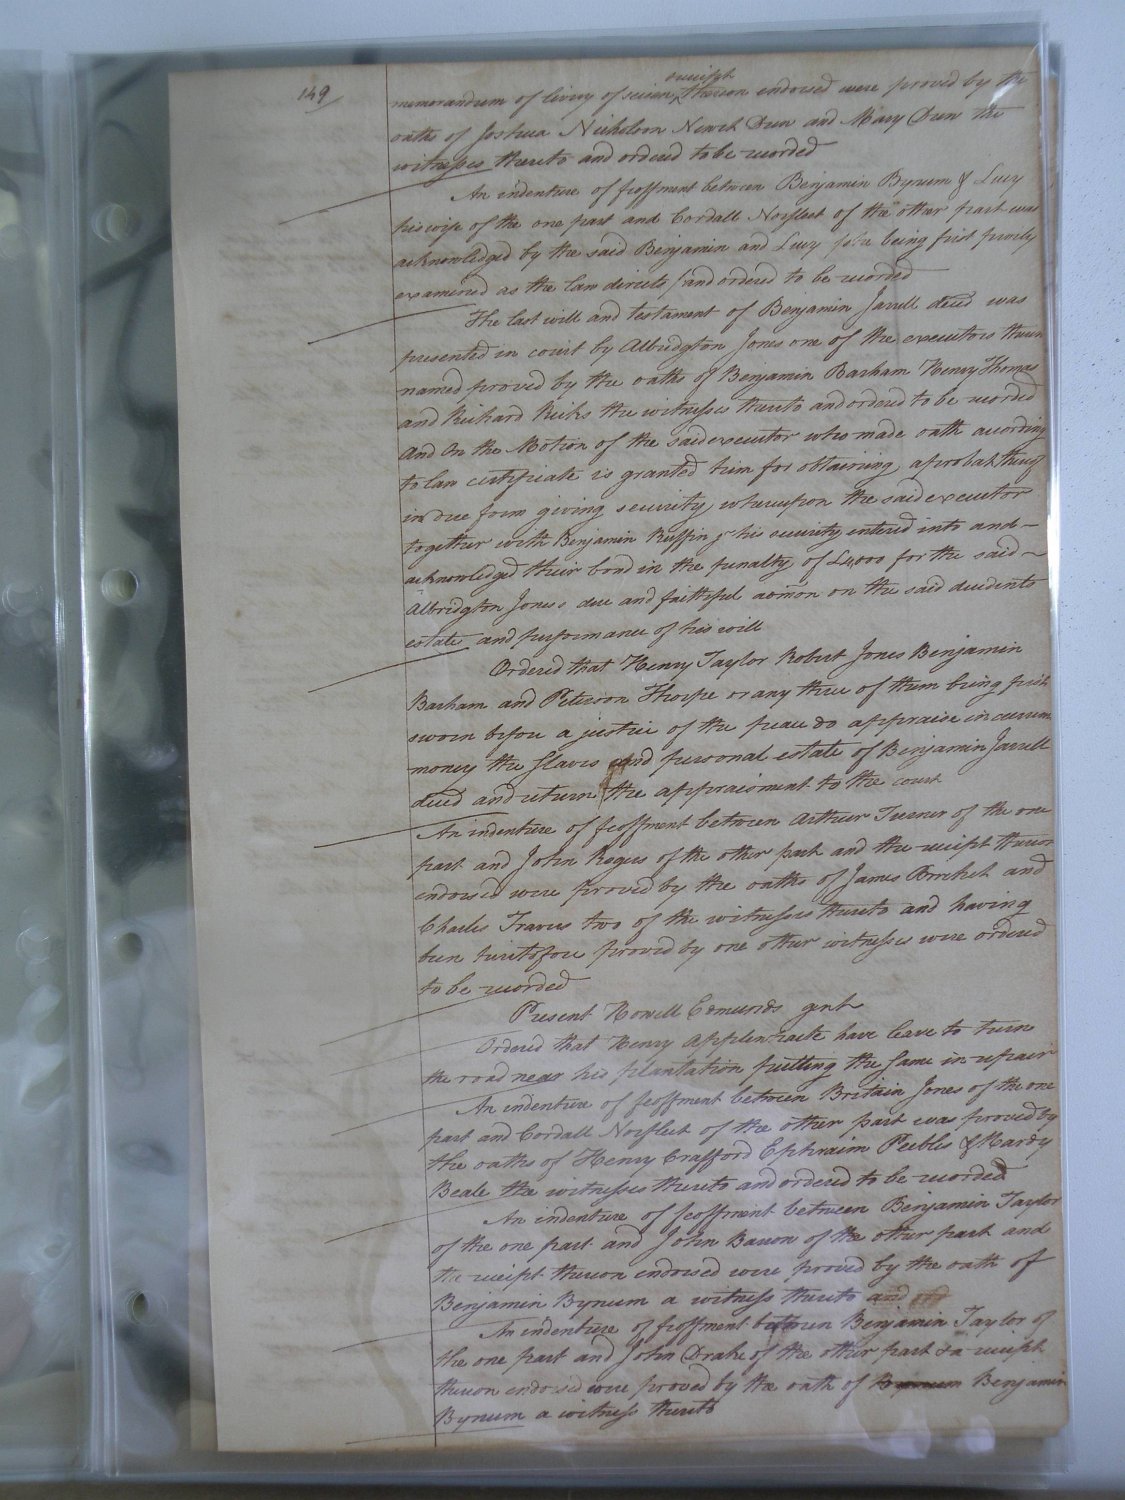 149
receipt
memorandum of livery of seisin, thereon endorsed were proved by the
oaths of Joshua Nicholson Newit Drew and Mary Drew the
witnesses thereto and ordered to be recorded
An indenture of feoffment between Benjamin Bynum & Lucy
his wife of the one part and Cordall Norfleet of the other part was
acknowledged by the said Benjamin and Lucy she being first privily
examined as the law directs and ordered to be recorded
The last will and testament of Benjamin Jarrell deced was
presented in court by Albridgton Jones one of the executors therein
named proved by the oaths of Benjamin Barham Henry Thomas
and Richard Ricks the witnesses thereto and ordered to be recorded
And On the Motion of the said executor who made oath according
to law certificate is granted him for obtaining a probat thereof
in due form giving security, whereupon the said executor
together with Benjamin Ruffin jr his security entered into and —
acknowledged their bond in the penalty of £4000 for the said —
Albridgton Jones's due and faithful admon on the said decedents
estate and performance of his will
Ordered that Henry Taylor Robert Jones Benjamin
Barham and Peterson Thorpe or any three of them being first
sworn before a justice of the peace do appraise in current
money the slaves and personal estate of Benjamin Jarrell
deced and return the appraisment to the court
An indenture of feoffment between Arthur Turner of the one
part and John Rogers of the other part and the receipt thereon
endorsed were proved by the oaths of James and
Charles Travis two of the witnesses thereto and having
been heretofore proved by one other witnesses were ordered
to be recorded
Present Howell Edmunds gent
Ordered that Henry Applewhaite have leave to turn
the road near his plantation putting the same in repair
An indenture of feoffment between Britain Jones of the one
part and Cordall Norfleet of the other part was proved by
the oaths of Henry Crafford Ephraim Peebles & Hardy
Beale the witnesses thereto and ordered to be recorded
An indenture of feoffment between Benjamin Taylor
of the one part and John Barrow of the other part and
the receipt thereon endorsed were proved by the oath of
Benjamin Bynum a witness thereto and
An indenture of feoffment between Benjamin Taylor of
the one part and John Drake of the other part & a receipt
thereon endorsed were proved by the oath of Benjamin
Bynum a witness thereto